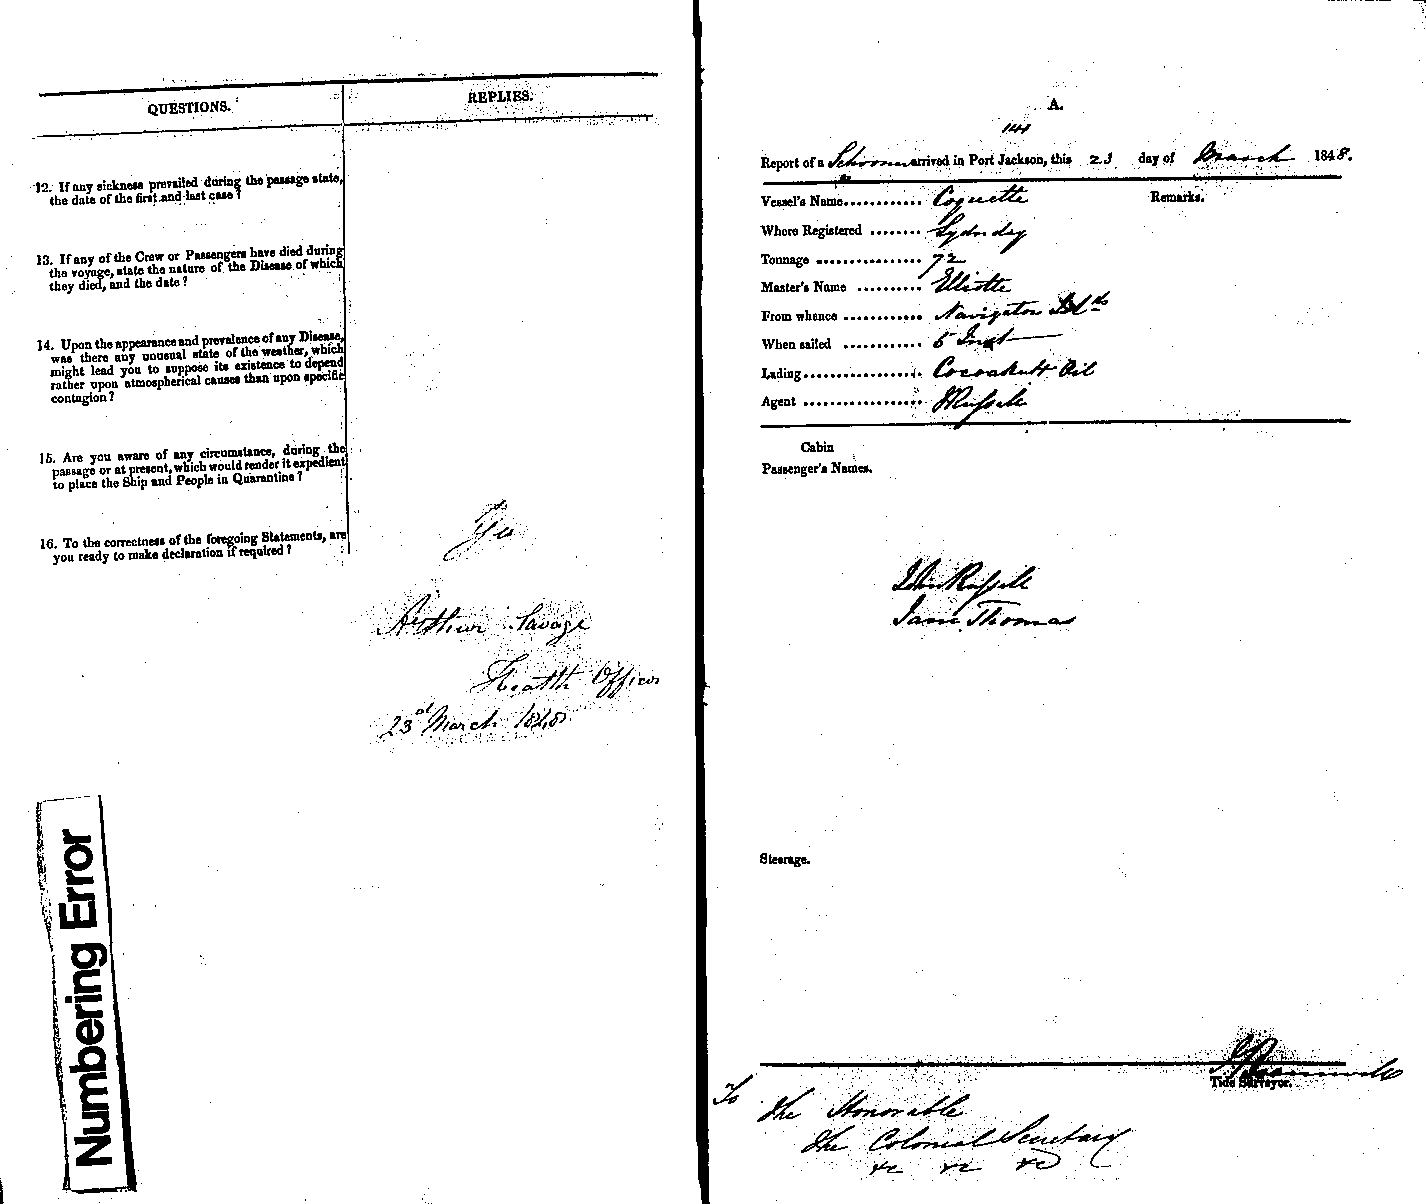 QUESTIONS.
REPLIES.
12. If any sickness prevailed during the passage state,
the date of the first and last case?
13. If any of the Crew or Passengers have died during
the voyage, state the nature of the Disease of which
they died, and the date?
14. Upon the appearance and prevalence of any Disease,
was there any unusual state of the weather, which
might lead you to suppose its existence to depend
rather upon atmospherical causes than upon specific
contagion?
15. Are you aware of any circumstance, during the
passage or at present, which would render it expedient
to place the Ship and People in Quarantine?
16. To the correctness of the foregoing Statements, are
you ready to make declaration if required?
Yes
Arthur Savage
Health Officer
23rd March 1848
Numbering Error
A.
141
Report of a Schooner arrived in Port Jackson, this 23 day of March 1848.
Vessel's Name............ Coquette
Remarks.
Where Registered ........ Sydney
Tonnage ................ 72
Master's Name .......... Elliotte
From whence ............ Navigator Islds
When sailed ............ 5 Inst
Lading.................. Cocoanutt Oil
Agent .................. Russell
Cabin
Passenger's Names.
John Russell
Jane Thomas
Steerage.
Tide Surveyor.
To
The Honorable
The Colonial Secretary
&c &c &c